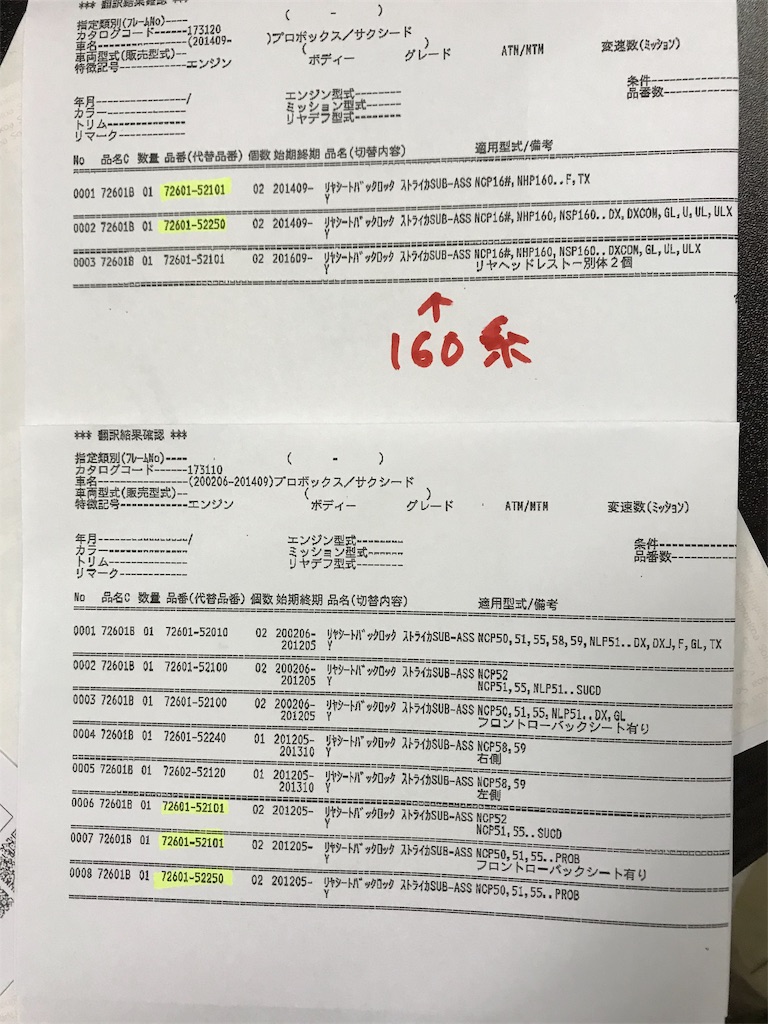 *** 翻訳結果確認 ***
指定類別(ﾌﾚｰﾑNo)----- ( - )
カタログコード------173120
車名---------------(201409- )プロボックス/サクシード
車両型式(販売型式)-- ( )
特徴記号-----------エンジン ボディー グレード ATM/MTM 変速数(ﾐｯｼｮﾝ)
年月---------------/ エンジン型式-------- 条件---------------
カラー------------- ミッション型式------- 品番数-------------
トリム------------- リヤデフ型式---------
リマーク------------
No 品名C 数量 品番(代替品番) 個数 始期終期 品名(切替内容) 適用型式/備考
0001 72601B 01 72601-52101 02 201409- ﾘﾔｼｰﾄﾊﾞｯｸﾛｯｸ ｽﾄﾗｲｶSUB-ASS NCP16#,NHP160..F,TX
Y
0002 72601B 01 72601-52250 02 201409- ﾘﾔｼｰﾄﾊﾞｯｸﾛｯｸ ｽﾄﾗｲｶSUB-ASS NCP16#,NHP160,NSP160..DX,DXCOM,GL,U,UL,ULX
Y
0003 72601B 01 72601-52101 02 201609- ﾘﾔｼｰﾄﾊﾞｯｸﾛｯｸ ｽﾄﾗｲｶSUB-ASS NCP16#,NHP160,NSP160..DXCOM,GL,UL,ULX
Y リヤヘッドレストー別体2個
↑
160系
*** 翻訳結果確認 ***
指定類別(ﾌﾚｰﾑNo)---- ( - )
カタログコード------173110
車名---------------(200206-201409)プロボックス/サクシード
車両型式(販売型式)-- ( )
特徴記号-----------エンジン ボディー グレード ATM/MTM 変速数(ﾐｯｼｮﾝ)
年月---------------/ エンジン型式-------- 条件---------------
カラー------------- ミッション型式------- 品番数-------------
トリム------------- リヤデフ型式---------
リマーク------------
No 品名C 数量 品番(代替品番) 個数 始期終期 品名(切替内容) 適用型式/備考
0001 72601B 01 72601-52010 02 200206- ﾘﾔｼｰﾄﾊﾞｯｸﾛｯｸ ｽﾄﾗｲｶSUB-ASS NCP50,51,55,58,59,NLP51..DX,DXJ,F,GL,TX
201205 Y
0002 72601B 01 72601-52100 02 200206- ﾘﾔｼｰﾄﾊﾞｯｸﾛｯｸ ｽﾄﾗｲｶSUB-ASS NCP52
201205 Y NCP51,55,NLP51..SUCD
0003 72601B 01 72601-52100 02 200206- ﾘﾔｼｰﾄﾊﾞｯｸﾛｯｸ ｽﾄﾗｲｶSUB-ASS NCP50,51,55,NLP51..DX,GL
201205 Y フロントローバックシート有り
0004 72601B 01 72601-52240 01 201205- ﾘﾔｼｰﾄﾊﾞｯｸﾛｯｸ ｽﾄﾗｲｶSUB-ASS NCP58,59
201310 Y 右側
0005 72601B 01 72602-52120 01 201205- ﾘﾔｼｰﾄﾊﾞｯｸﾛｯｸ ｽﾄﾗｲｶSUB-ASS NCP58,59
201310 Y 左側
0006 72601B 01 72601-52101 02 201205- ﾘﾔｼｰﾄﾊﾞｯｸﾛｯｸ ｽﾄﾗｲｶSUB-ASS NCP52
Y NCP51,55..SUCD
0007 72601B 01 72601-52101 02 201205- ﾘﾔｼｰﾄﾊﾞｯｸﾛｯｸ ｽﾄﾗｲｶSUB-ASS NCP50,51,55..PROB
Y フロントローバックシート有り
0008 72601B 01 72601-52250 02 201205- ﾘﾔｼｰﾄﾊﾞｯｸﾛｯｸ ｽﾄﾗｲｶSUB-ASS NCP50,51,55..PROB
Y